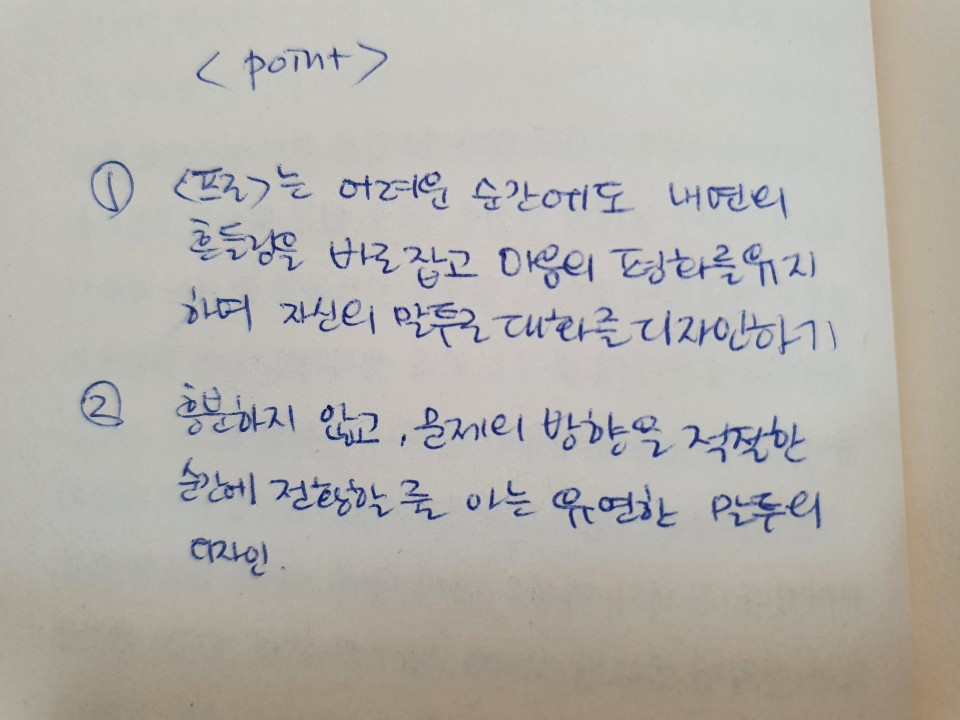 < point >
① <프로>는 어려운 순간에도 내면의
흔들림을 바로잡고 마음의 평화를 유지
하며 자신의 말투로 대화를 디자인하기
② 흥분하지 않고, 문제의 방향을 적절한
순간에 전환할 줄 아는 유연한 말투의
디자인.